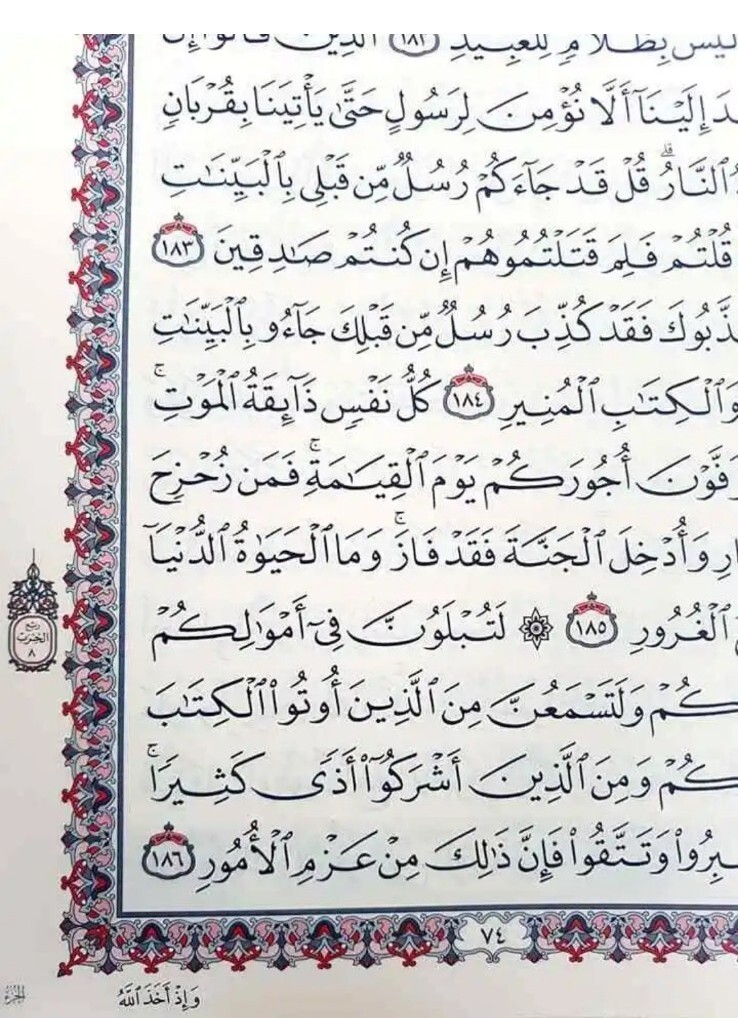 لَيْسَ بِظَلَّامٍ لِّلْعَبِيدِ ١٨٢ ٱلَّذِينَ قَالُوٓا۟ إِنَّ
إِلَيْنَآ أَلَّا نُؤْمِنَ لِرَسُولٍ حَتَّىٰ يَأْتِيَنَا بِقُرْبَانٍ
ٱلنَّارُ ۗ قُلْ قَدْ جَآءَكُمْ رُسُلٌ مِّن قَبْلِى بِٱلْبَيِّنَٰتِ
قُلْتُمْ فَلِمَ قَتَلْتُمُوهُمْ إِن كُنتُمْ صَٰدِقِينَ ١٨٣
ذَّبُوكَ فَقَدْ كُذِّبَ رُسُلٌ مِّن قَبْلِكَ جَآءُو بِٱلْبَيِّنَٰتِ
وَٱلْكِتَٰبِ ٱلْمُنِيرِ ١٨٤ كُلُّ نَفْسٍ ذَآئِقَةُ ٱلْمَوْتِ ۗ
وَفَّوْنَ أُجُورَكُمْ يَوْمَ ٱلْقِيَٰمَةِ ۖ فَمَن زُحْزِحَ
ارِ وَأُدْخِلَ ٱلْجَنَّةَ فَقَدْ فَازَ ۗ وَمَا ٱلْحَيَوٰةُ ٱلدُّنْيَآ
ٱلْغُرُورِ ١٨٥ ۞ لَتُبْلَوُنَّ فِىٓ أَمْوَٰلِكُمْ
كُمْ وَلَتَسْمَعُنَّ مِنَ ٱلَّذِينَ أُوتُوا۟ ٱلْكِتَٰبَ
كُمْ وَمِنَ ٱلَّذِينَ أَشْرَكُوٓا۟ أَذًى كَثِيرًا ۚ
بِرُوا۟ وَتَتَّقُوا۟ فَإِنَّ ذَٰلِكَ مِنْ عَزْمِ ٱلْأُمُورِ ١٨٦
ربع
الحزب
٨
٧٤
وَإِذْ أَخَذَ ٱللَّهُ